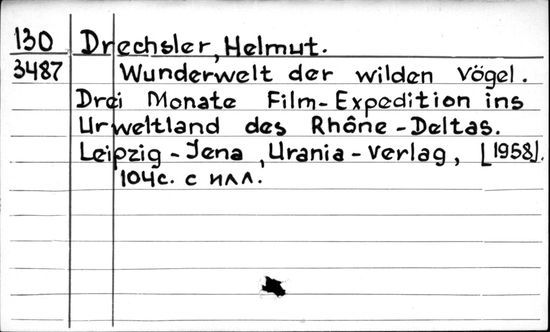 130 Drechsler, Helmut.
3487 Wunderwelt der wilden Vögel.
Drei Monate Film-Expedition ins
Urweltland des Rhône-Deltas.
Leipzig-Jena, Urania-Verlag, [1958].
104с. с илл.